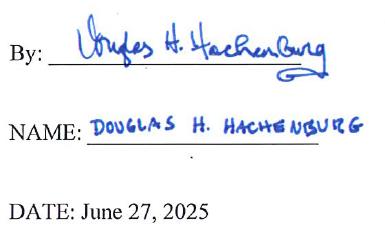 By: Douglas H. Hachenburg
NAME: DOUGLAS H. HACHENBURG
DATE: June 27, 2025